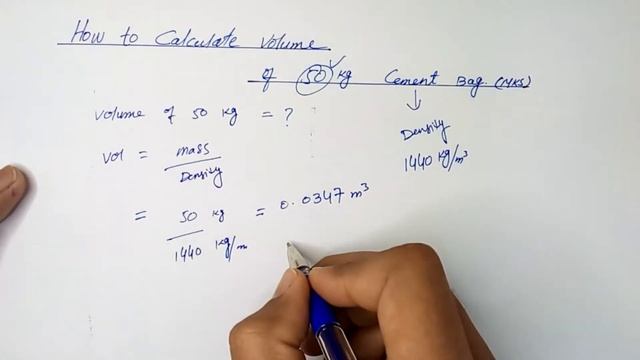 How to Calculate Volume
of 50 kg Cement Bag (MKS)
Volume of 50 kg = ?
Density
1440 kg/m³
Vol = mass / Density
= 50 kg / 1440 kg/m = 0.0347 m³